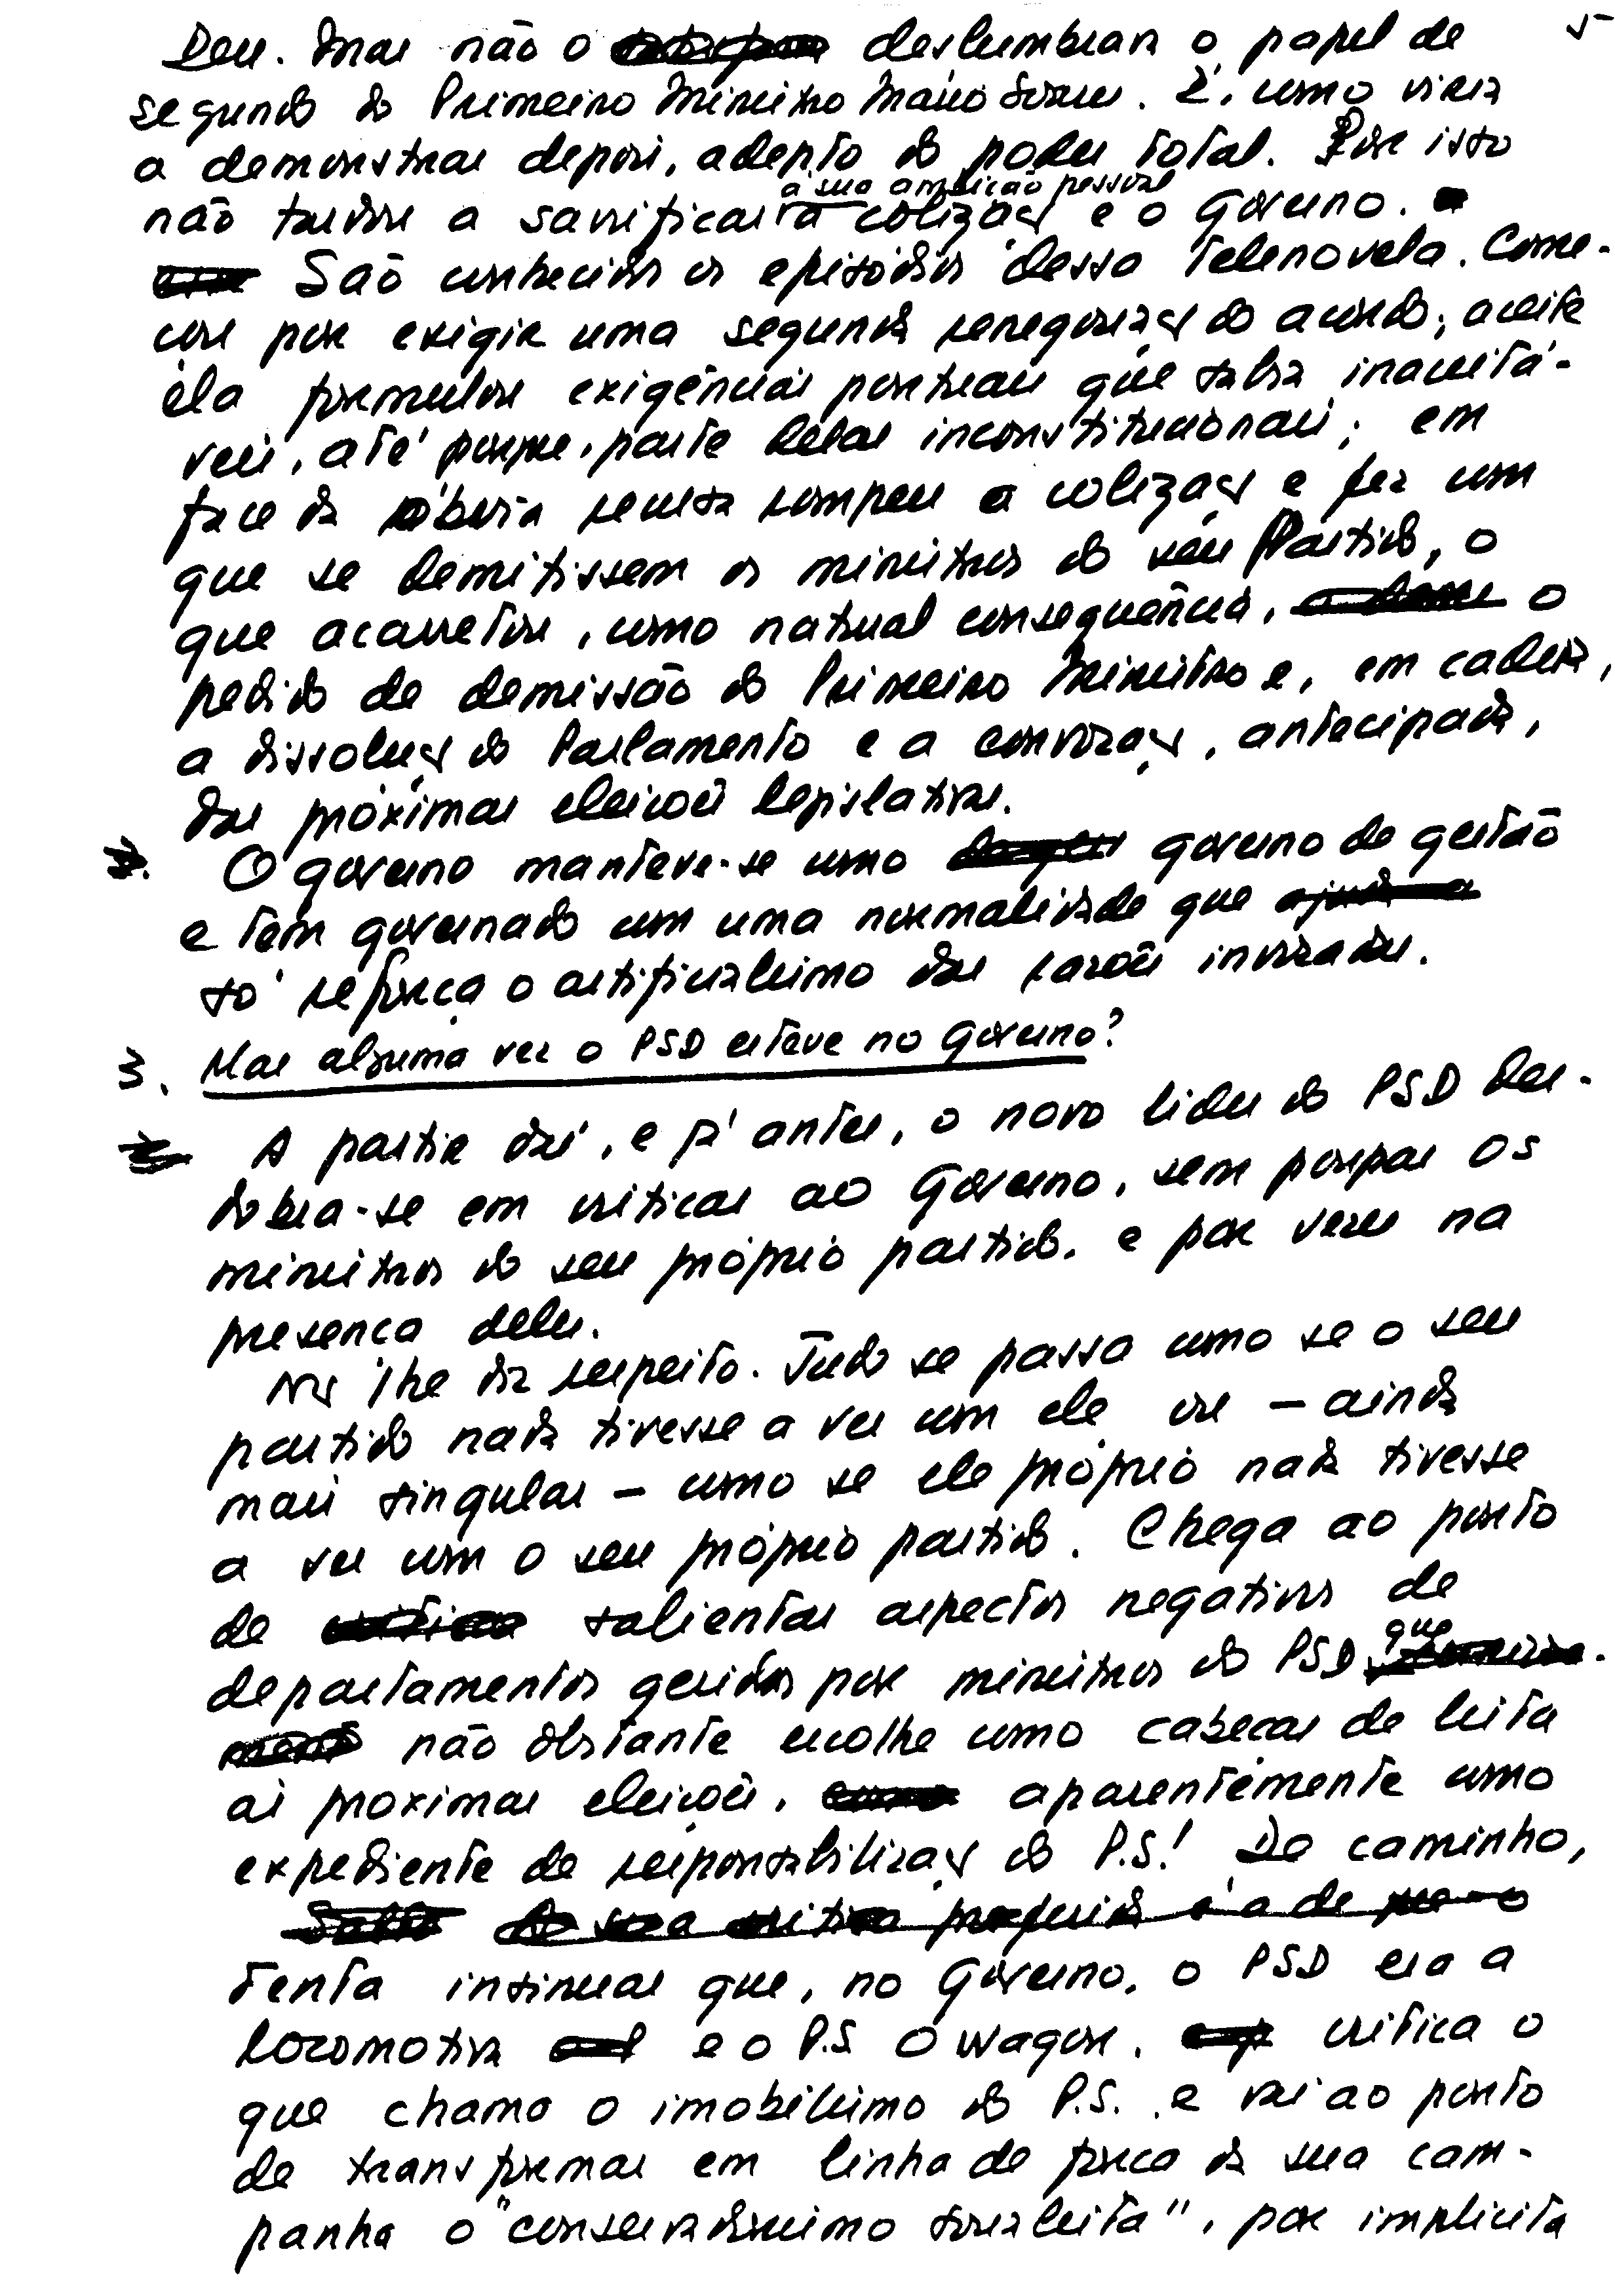 5
Deu. Mas não o deslumbrava o papel de
segundo do Primeiro Ministro Mário Soares. É, como viria
a demonstrar depois, adepto do poder total. Por isto
não tardou a sacrificar à sua ambição pessoal a coligação e o Governo.
São conhecidos os episódios dessa telenovela. Come-
çou por exigir uma segunda renegociação do acordo; aceite
ela formulou exigências pontuais que sabia inaceitá-
veis, até porque, parte delas inconstitucionais; em
face da óbvia recusa rompeu a coligação e fez com
que se demitissem os ministros do seu Partido, o
que acarretou, como natural consequência, o
pedido de demissão do Primeiro Ministro e, em cadeia,
a dissolução do Parlamento e a convocação, antecipada,
das próximas eleições legislativas.
O governo manteve-se como governo de gestão
e tem governado com uma normalidade que
só reforça o artificialismo das razões invocadas.
3. Mas alguma vez o PSD esteve no Governo?
A partir daí, e já antes, o novo lider do PSD des-
dobra-se em criticas ao Governo, sem poupar os
ministros do seu próprio partido, e por vezes na
presença deles.
Não lhe diz respeito. Tudo se passa como se o seu
partido nada tivesse a ver com ele ou – ainda
mais singular – como se ele próprio nada tivesse
a ver com o seu próprio partido. Chega ao ponto
de salientar aspectos negativos de
departamentos geridos por ministros do PSD que
não obstante escolhe como cabeças de lista
às proximas eleições, aparentemente como
expediente de responsabilização do P.S.! De caminho,
tenta insinuar que, no Governo, o PSD era a
locomotiva e o P.S. o wagon, critica o
que chama o imobilismo do P.S. e vai ao ponto
de transformar em linha de força da sua cam-
panha o "conservadorismo socialista", por implicita